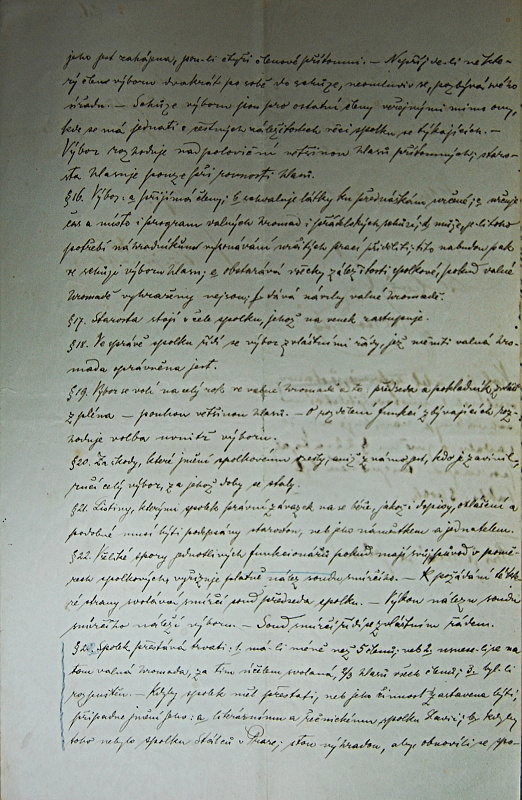 jeho jest zahájena, jsou-li čtyři členové přítomni. — Nepřijde-li někte-
rý člen výboru dvakrát po sobě do schůze, neomluviv se, pozbývá svého
úřadu. — Schůze výboru jsou pro ostatní členy veřejnými mimo ony,
kde se má jednati o věcích spolku se týkajících. —
Výbor rozhoduje nadpoloviční většinou hlasů přítomných; staro-
sta hlasuje pouze při rovnosti hlasů.
§16. Výbor: a přijímá členy; b schvaluje látky ku přednáškám určené; c určuje
čas a místo i program valných hromad i přátelských schůzí; d může, je-li toho
potřebí náhradníkům vykonávání určitých prací přiděliti; tito nabudou pak
ve schůzi výboru hlasu; e obstarává všecky záležitosti spolkové, pokud valné
hromadě vyhrazeny nejsou; f dává návrhy valné hromadě.
§17. Starosta stojí v čele spolku, jehož na venek zastupuje.
§18. Ve správě spolku řídí se výbor zvláštními řády, jež měniti valná hro-
mada oprávněna jest.
§19. Výbor se volí na celý rok ve valné hromadě a to předseda a pokladník zvlášť
z pléna — pouhou většinou hlasů. — O rozdělení funkcí zbývajících roz-
hoduje volba uvnitř výboru.
§20. Za škody, které jmění spolkovému vzešly, aniž známo jest, kdo je zavinil,
ručí celý výbor, za jehož doby se staly.
§21. Listiny, kterými spolek právní závazek na se béře, jakož i dopisy, ohlášení a
podobné musí býti podepsány starostou, neb jeho náměstkem a jednatelem.
§22. Veškeré spory jednotlivých funkcionářů pokud mají svůj původ v pomě-
rech spolkových vyřizuje platně nález soudu smírčího. — K požádání té které
strany svolává smírčí soud předseda spolku. — Výkon nálezu soudu
smírčího náleží výboru. — Soud smírčí řídí se zvláštním řádem.
§23. Spolek přestává trvati: 1. má-li méně než 5 členů; neb 2. usnese-li se na
tom valná hromada, za tím účelem svolaná, 2/3 hlasů všech členů; 3. byl-li
rozpuštěn. — Kdyby spolek měl přestati, neb jeho činnost zastavena býti,
připadne jmění jeho: a literárnímu a řečnickému spolku Slavii; b kdyby
toho nebylo spolku Stálců v Praze; s tou výhradou, aby, obnovil-li se spo-